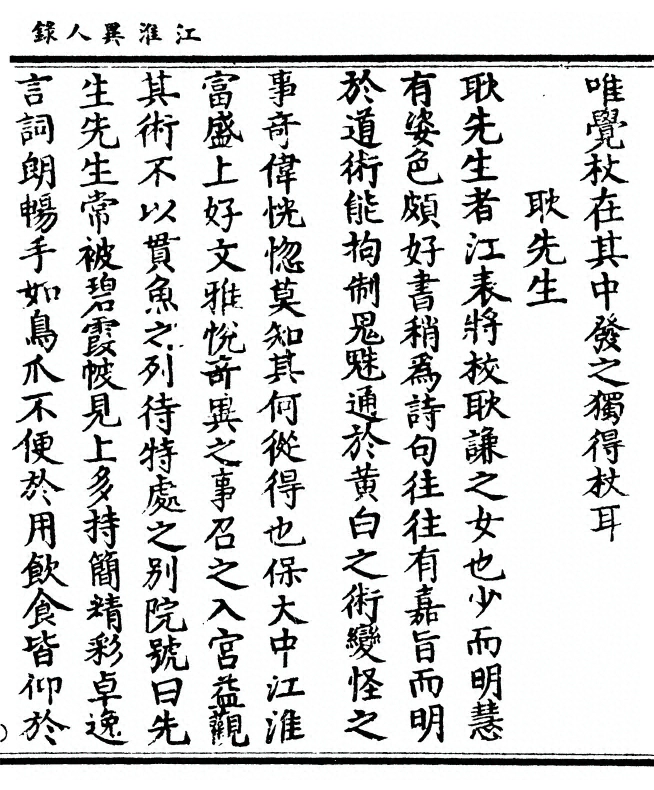 江淮異人錄
唯覺杖在其中發之獨得杖耳
耿先生
耿先生者江表將校耿謙之女也少而明慧
有姿色頗好書稍爲詩句往往有嘉旨而明
於道術能拘制鬼魅通於黄白之術變怪之
事奇偉恍惚莫知其何從得也保大中江淮
富盛上好文雅悅奇異之事召之入宮益觀
其術不以貫魚之列待特處之别院號曰先
生先生常被碧霞帔見上多持簡精彩卓逸
言詞朗暢手如鳥爪不便於用飲食皆仰於